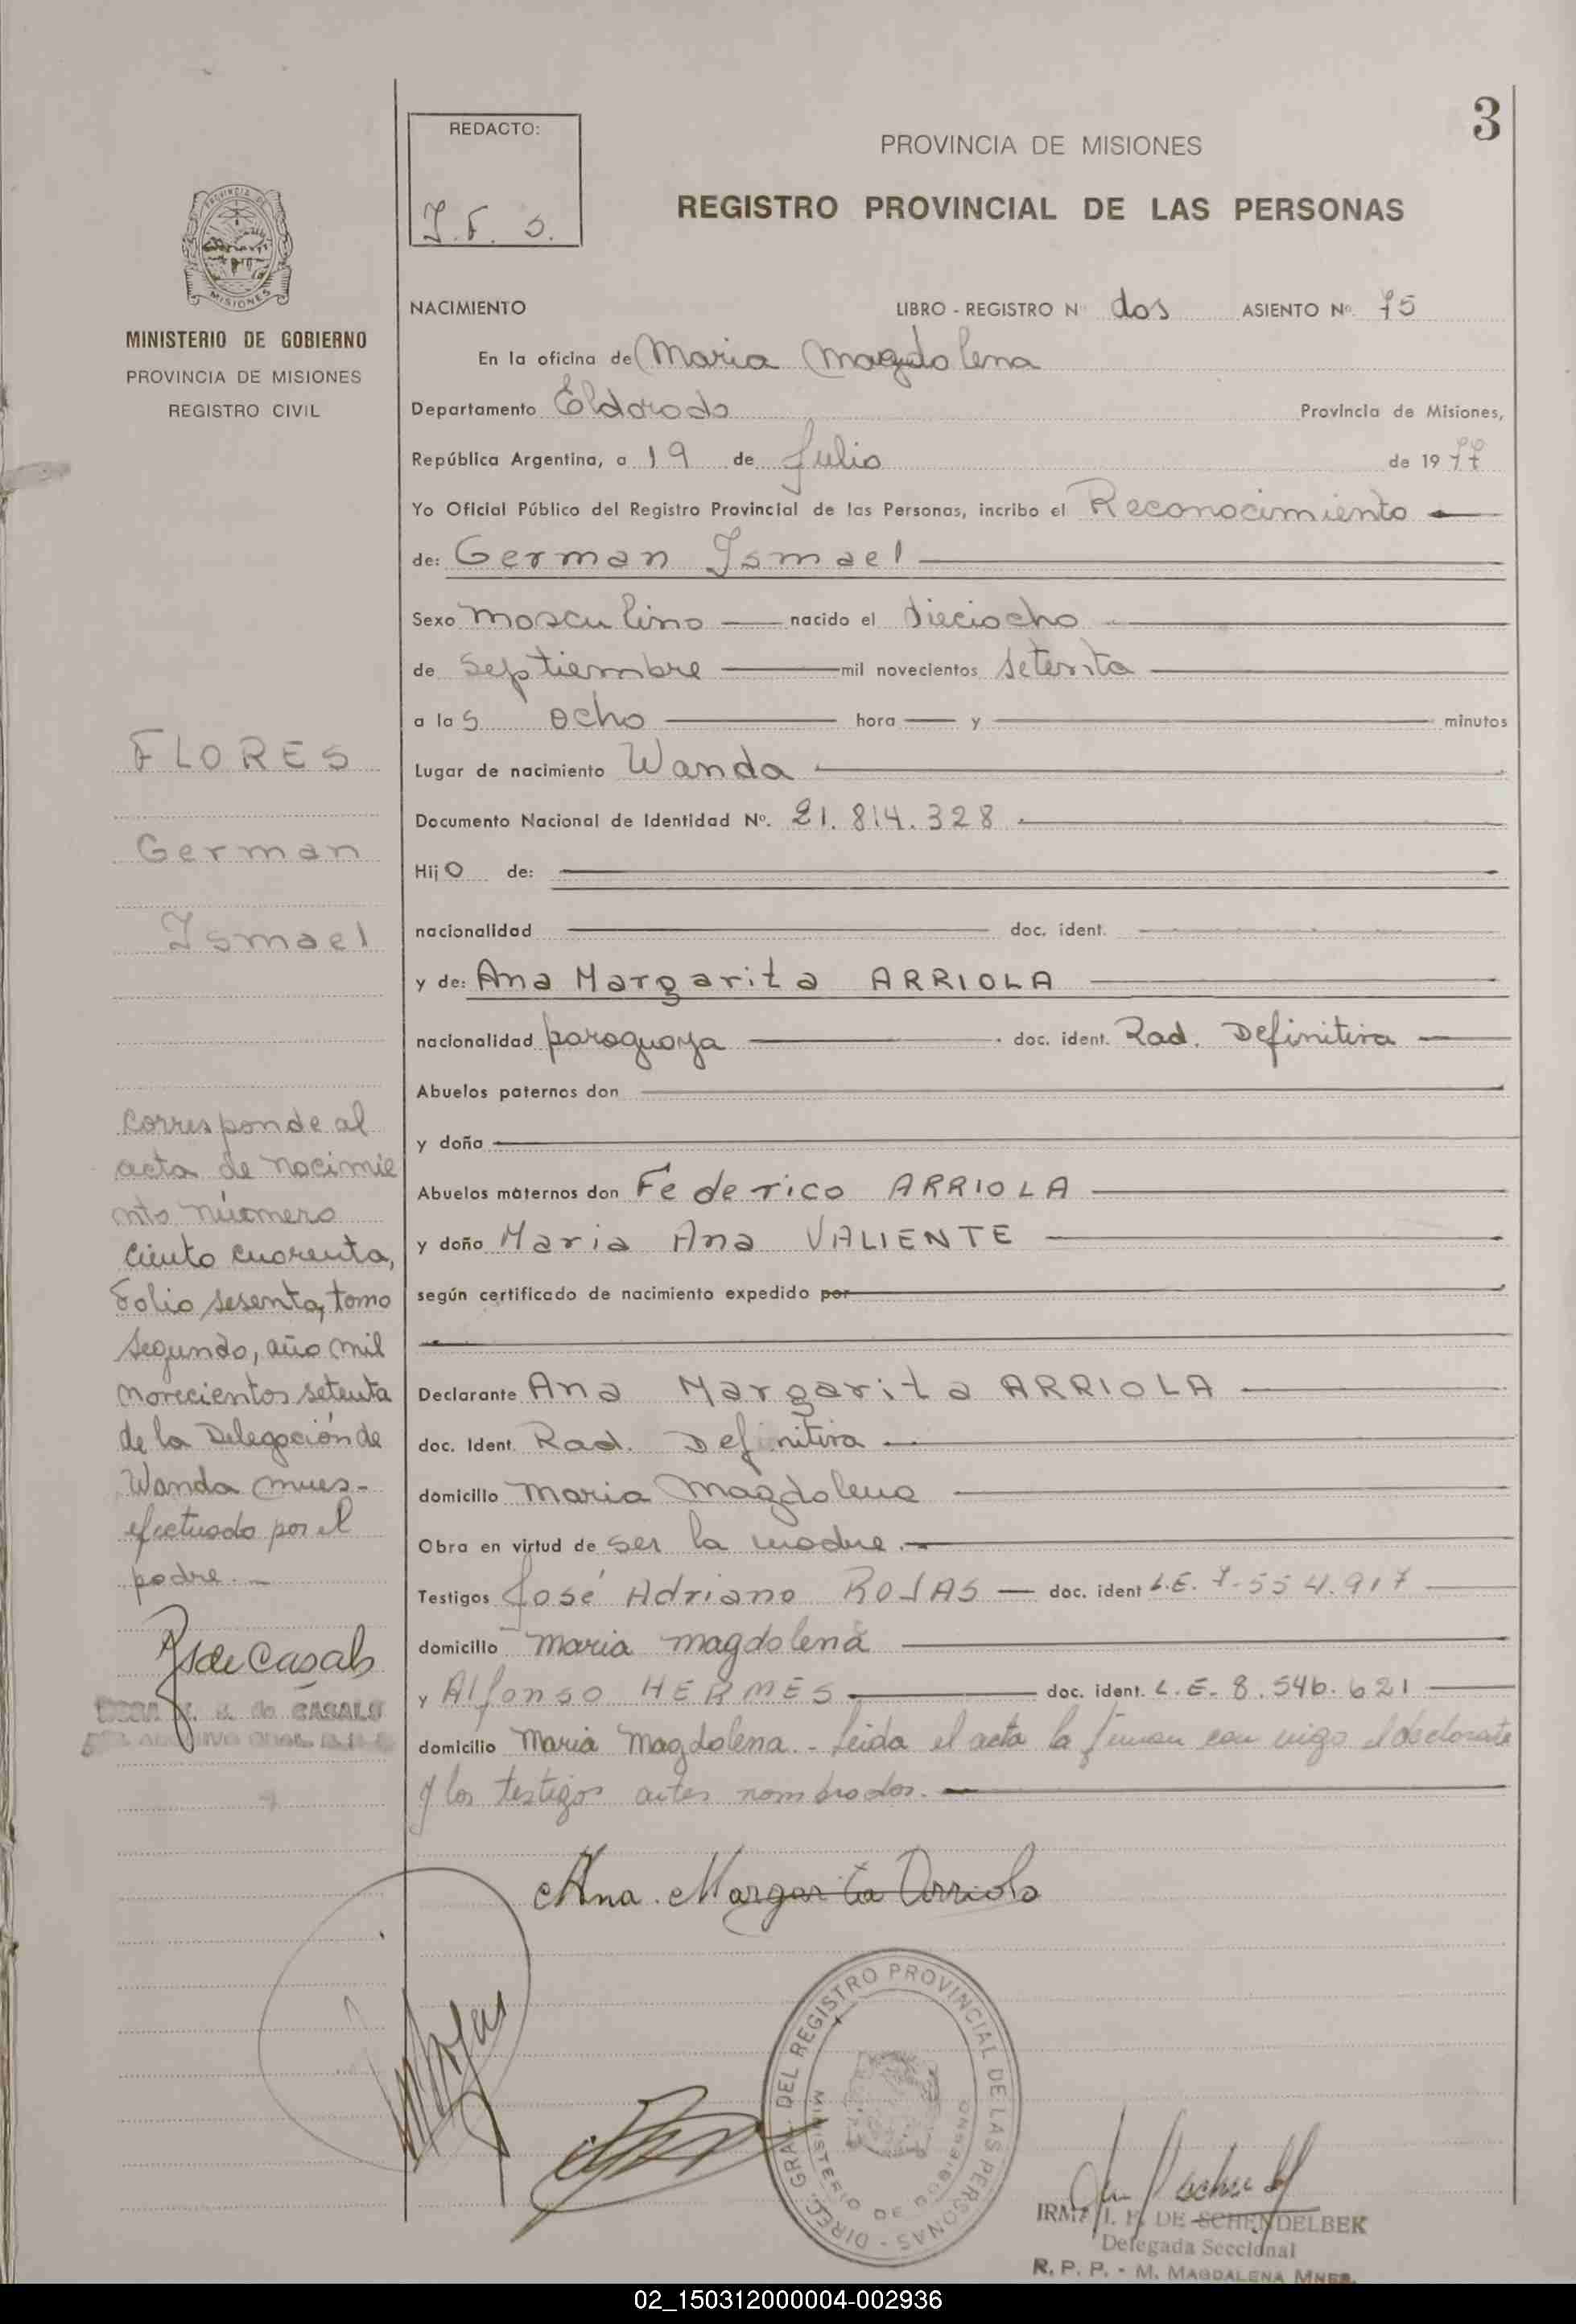 3
REDACTO:
J. F. S.
PROVINCIA DE MISIONES
REGISTRO PROVINCIAL DE LAS PERSONAS
PROVINCIA DE
MISIONES
MINISTERIO DE GOBIERNO
PROVINCIA DE MISIONES
REGISTRO CIVIL
NACIMIENTO LIBRO - REGISTRO Nº dos ASIENTO Nº. 75
En la oficina de Maria Magdalena
Departamento Eldorado Provincia de Misiones,
República Argentina, a 19 de Julio de 1977
Yo Oficial Público del Registro Provincial de las Personas, incribo el Reconocimiento
de: German Ismael
Sexo Masculino nacido el dieciocho
de Septiembre mil novecientos setenta
a las ocho hora y minutos
Lugar de nacimiento Wanda
Documento Nacional de Identidad Nº. 21.814.328
Hijo de:
nacionalidad doc. ident.
y de: Ana Margarita ARRIOLA
nacionalidad paraguaya doc. ident. Rad. Definitiva
Abuelos paternos don
y doña
Abuelos maternos don Federico ARRIOLA
y doña Maria Ana VALIENTE
según certificado de nacimiento expedido por
Declarante Ana Margarita ARRIOLA
doc. Ident. Rad. Definitiva
domicilio Maria Magdalena
Obra en virtud de ser la madre.
Testigos José Adriano ROJAS doc. ident L.E. 7.554.917
domicilio Maria Magdalena
y Alfonso HERMES doc. ident. L.E. 8.546.621
domicilio Maria Magdalena. - Leida el acta la firman con migo el declarate
y los testigos antes nombrados.
FLORES
German
Ismael
Corresponde al
acta de nacimie
nto número
ciento cuarenta,
Folio sesenta, tomo
segundo, año mil
novecientos setenta
de la Delegación de
Wanda mnes-
efectuado por el
padre. -
de Casals
de CASALS
Ana Margarita Arriola
DIREC. GRAL. DEL REGISTRO PROVINCIAL DE LAS PERSONAS -
MINISTERIO DE GOBIERNO
IRMA I. F. DE SCHENDELBEK
Delegada Seccional
R. P. P. - M. MAGDALENA MNES.
02_150312000004-002936